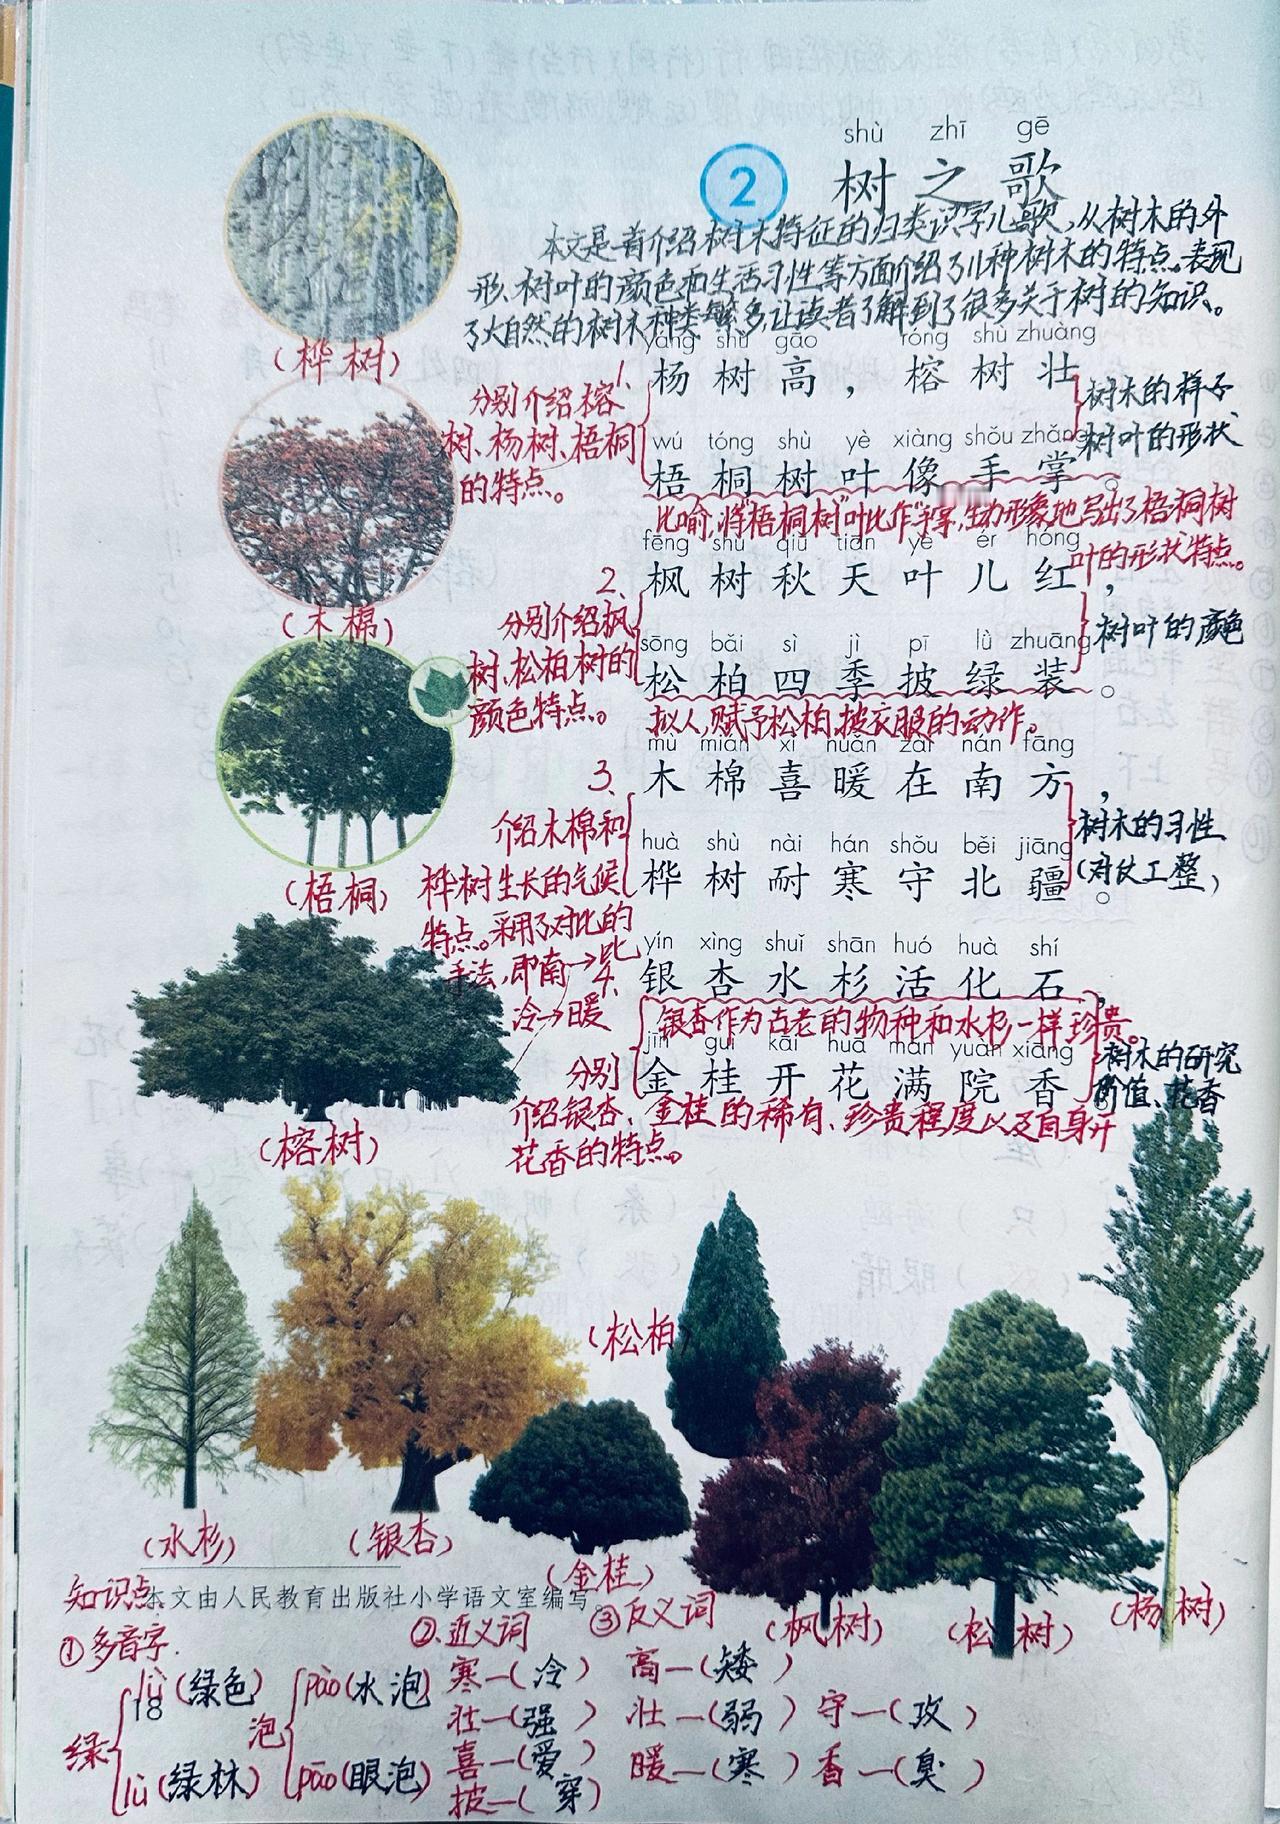 shù zhī gē
2 树之歌
本文是首介绍树木特征的归类识字儿歌,从树木的外
形、树叶的颜色和生活习性等方面介绍了11种树木的特点。表现
了大自然的树木种类繁多,让读者了解到了很多关于树的知识。
(桦树)
yáng shù gāo róng shù zhuàng
1、杨树高,榕树壮
wú tóng shù yè xiàng shǒu zhǎng
梧桐树叶像手掌。
分别介绍榕
树、杨树、梧桐
的特点。
树木的样子
树叶的形状
比喻,将“梧桐树”叶比作“手掌”,生动形象地写出了梧桐树
叶的形状特点。
(木棉)
fēng shù qiū tiān yè ér hóng
2、枫树秋天叶儿红,
sōng bǎi sì jì pī lǜ zhuāng
松柏四季披绿装。
分别介绍枫
树、松柏树的
颜色特点。
树叶的颜色
拟人,赋予松柏披衣服的动作。
(梧桐)
mù mián xǐ nuǎn zài nán fāng
3、木棉喜暖在南方,
huà shù nài hán shǒu běi jiāng
桦树耐寒守北疆。
介绍木棉和
桦树生长的气候
特点。采用了对比的
手法,即南→北
冷→暖
树木的习性
(对仗工整)
(榕树)
yín xìng shuǐ shān huó huà shí
4、银杏水杉活化石,
银杏作为古老的物种和水杉一样珍贵。
jīn guì kāi huā mǎn yuàn xiāng
金桂开花满院香
树木的研究
价值、花香
分别
介绍银杏、金桂的稀有、珍贵程度以及自身开
花香的特点。
(松柏)
(水杉) (银杏) (金桂) (枫树) (松树) (杨树)
本文由人民教育出版社小学语文室编写。
18
知识点
①多音字.
绿 lǜ(绿色) lù(绿林)
泡 pào(水泡) pāo(眼泡)
②近义词
寒—(冷)
壮—(强)
喜—(爱)
披—(穿)
③反义词
高—(矮)
壮—(弱) 守—(攻)
暖—(寒) 香—(臭)